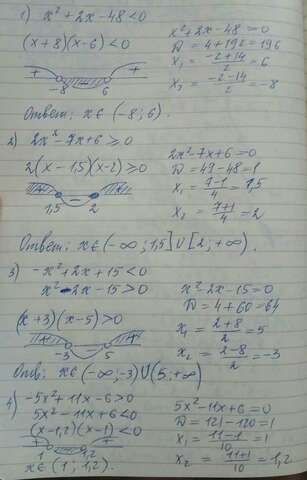 1) x² + 2x - 48 < 0
x² + 2x - 48 = 0
(x + 8)(x - 6) < 0
D = 4 + 192 = 196
x₁ = (-2+14)/2 = 6
x₂ = (-2-14)/2 = -8
+ - +
-8 6
Ответ: x ∈ (-8; 6).
2) 2x² - 7x + 6 ≥ 0
2x² - 7x + 6 = 0
2(x - 1,5)(x - 2) ≥ 0
D = 49 - 48 = 1
x₁ = (7-1)/4 = 1,5
x₂ = (7+1)/4 = 2
+ - +
1,5 2
Ответ: x ∈ (-∞; 1,5] U [2; +∞).
3) -x² + 2x + 15 < 0
x² - 2x - 15 > 0
x² - 2x - 15 = 0
D = 4 + 60 = 64
(x + 3)(x - 5) > 0
x₁ = (2+8)/2 = 5
x₂ = (2-8)/2 = -3
-3 5
Отв: x ∈ (-∞; -3) U (5; +∞
4) -5x² + 11x - 6 > 0
5x² - 11x + 6 < 0
5x² - 11x + 6 = 0
(x - 1,2)(x - 1) < 0
D = 121 - 120 = 1
x₁ = (11-1)/10 = 1
x₂ = (11+1)/10 = 1,2
+ - +
1 1,2
x ∈ (1; 1,2).